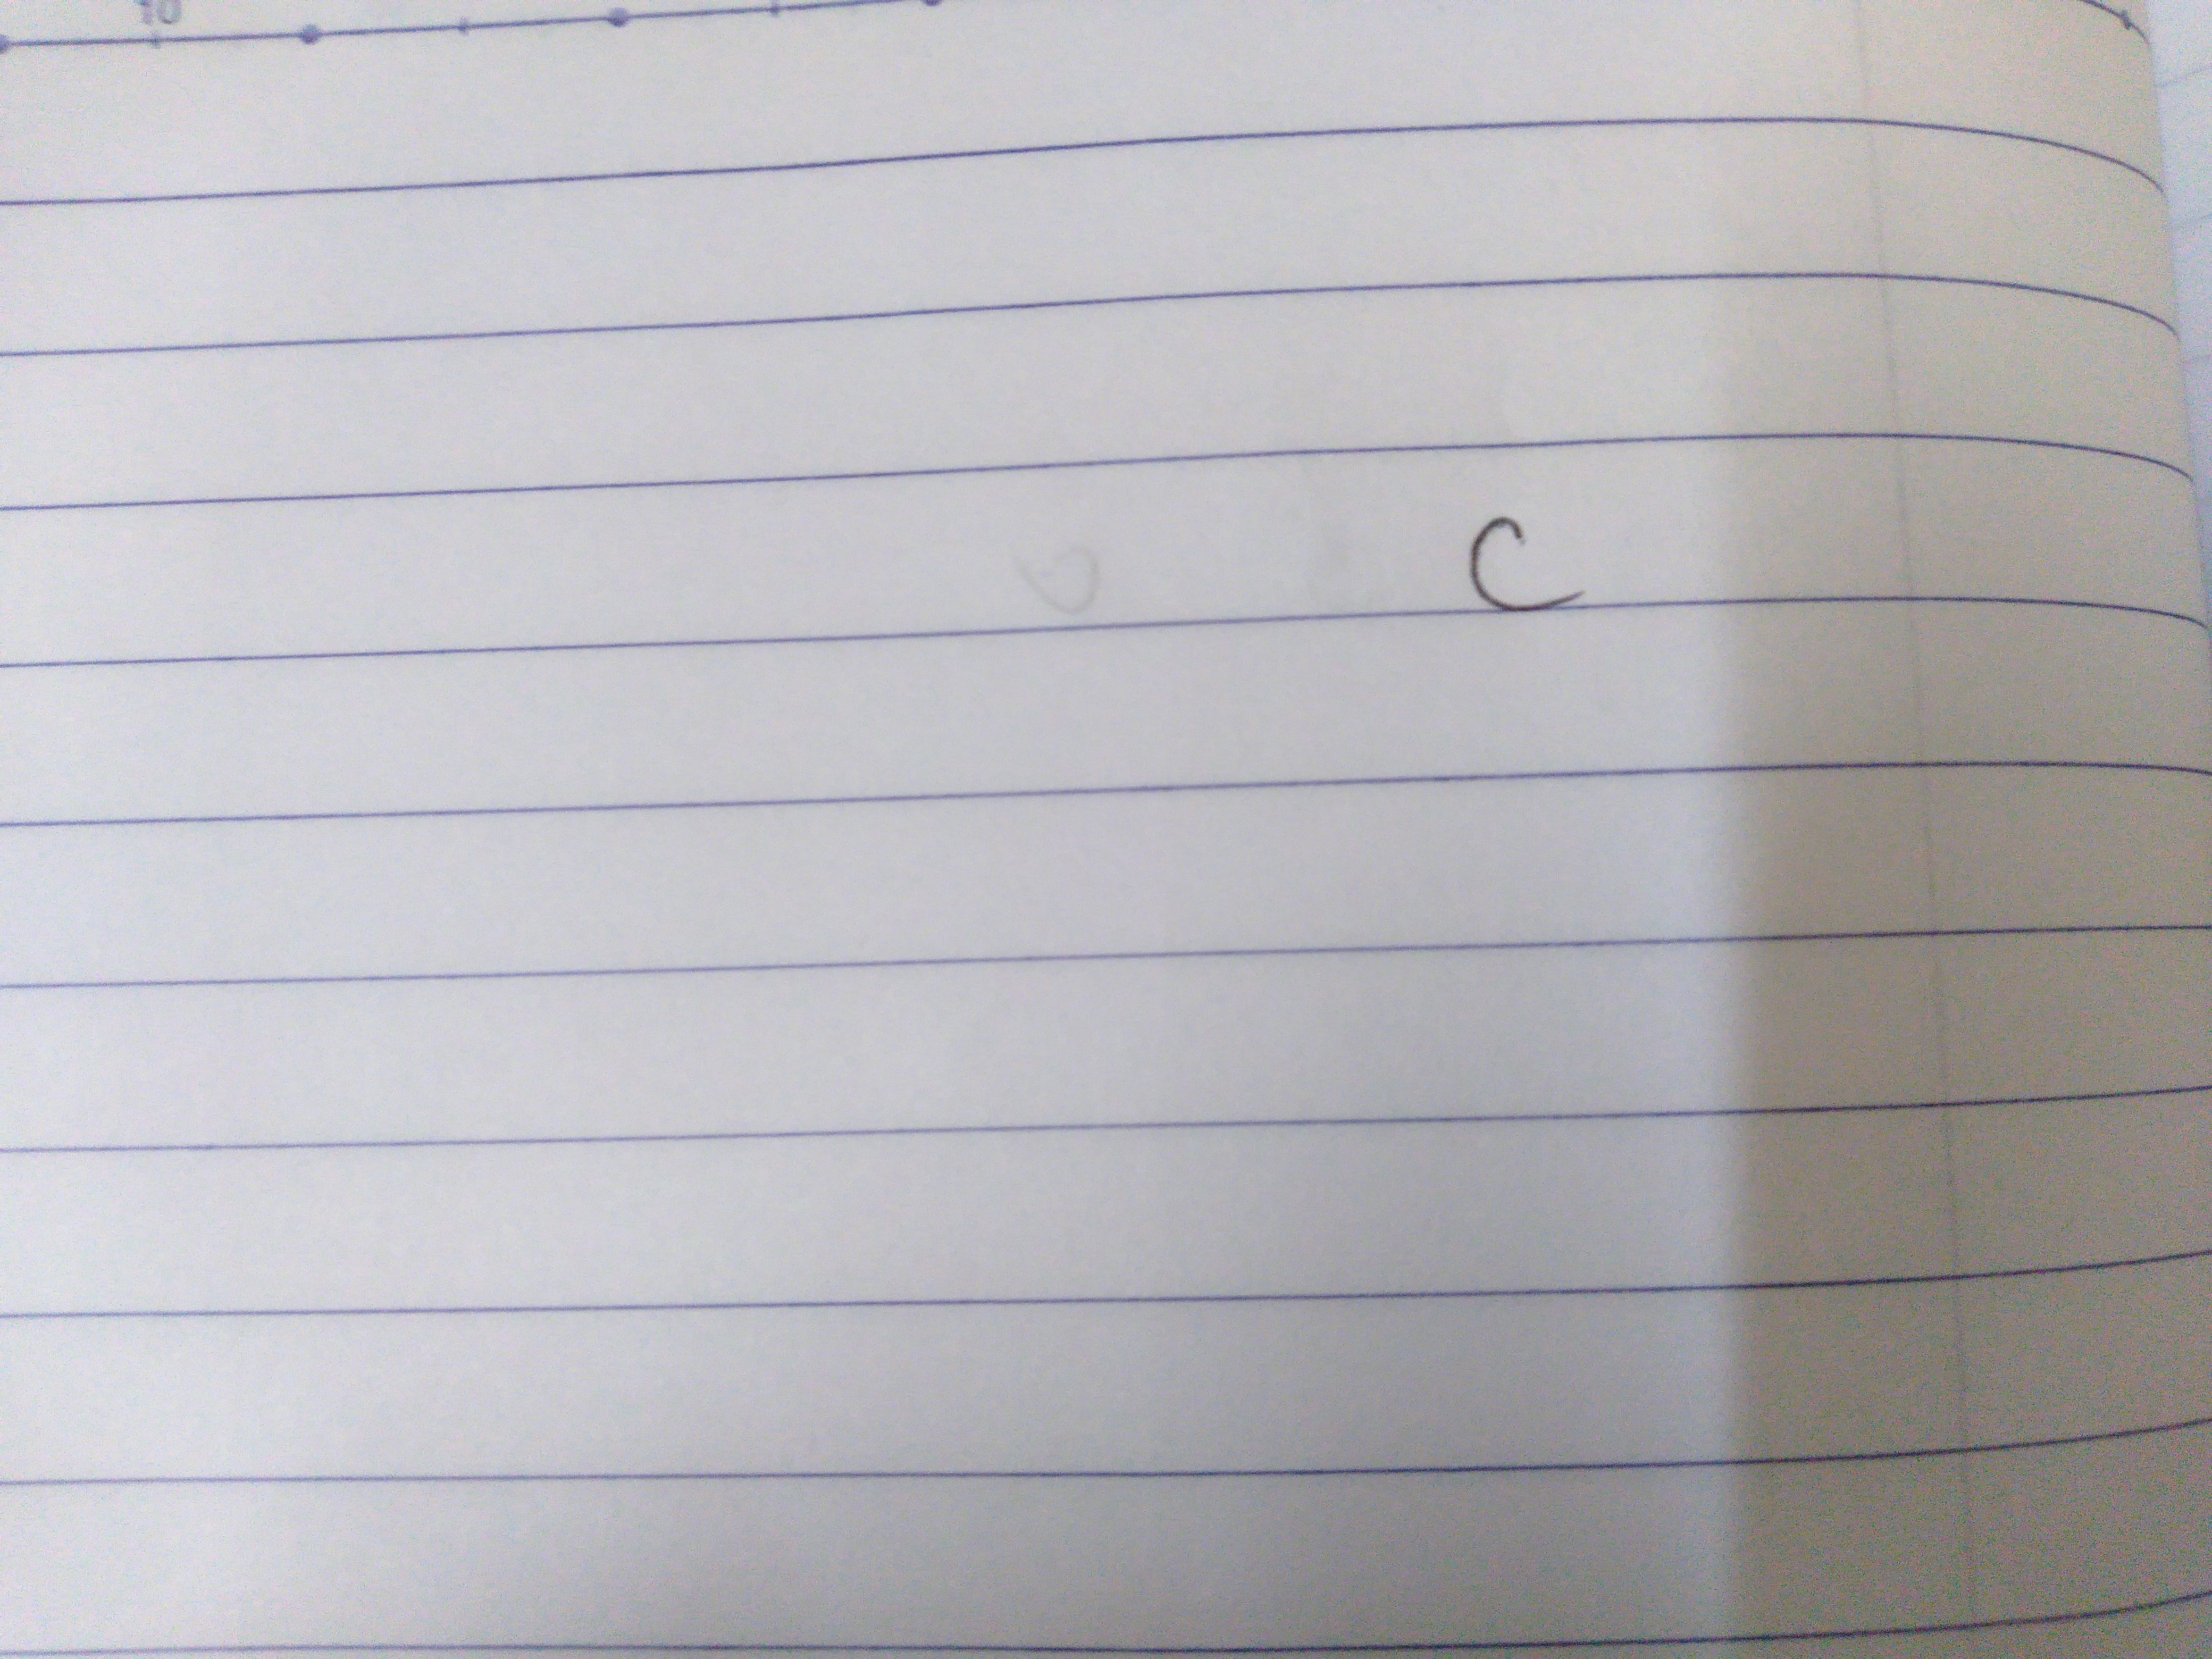 10
C